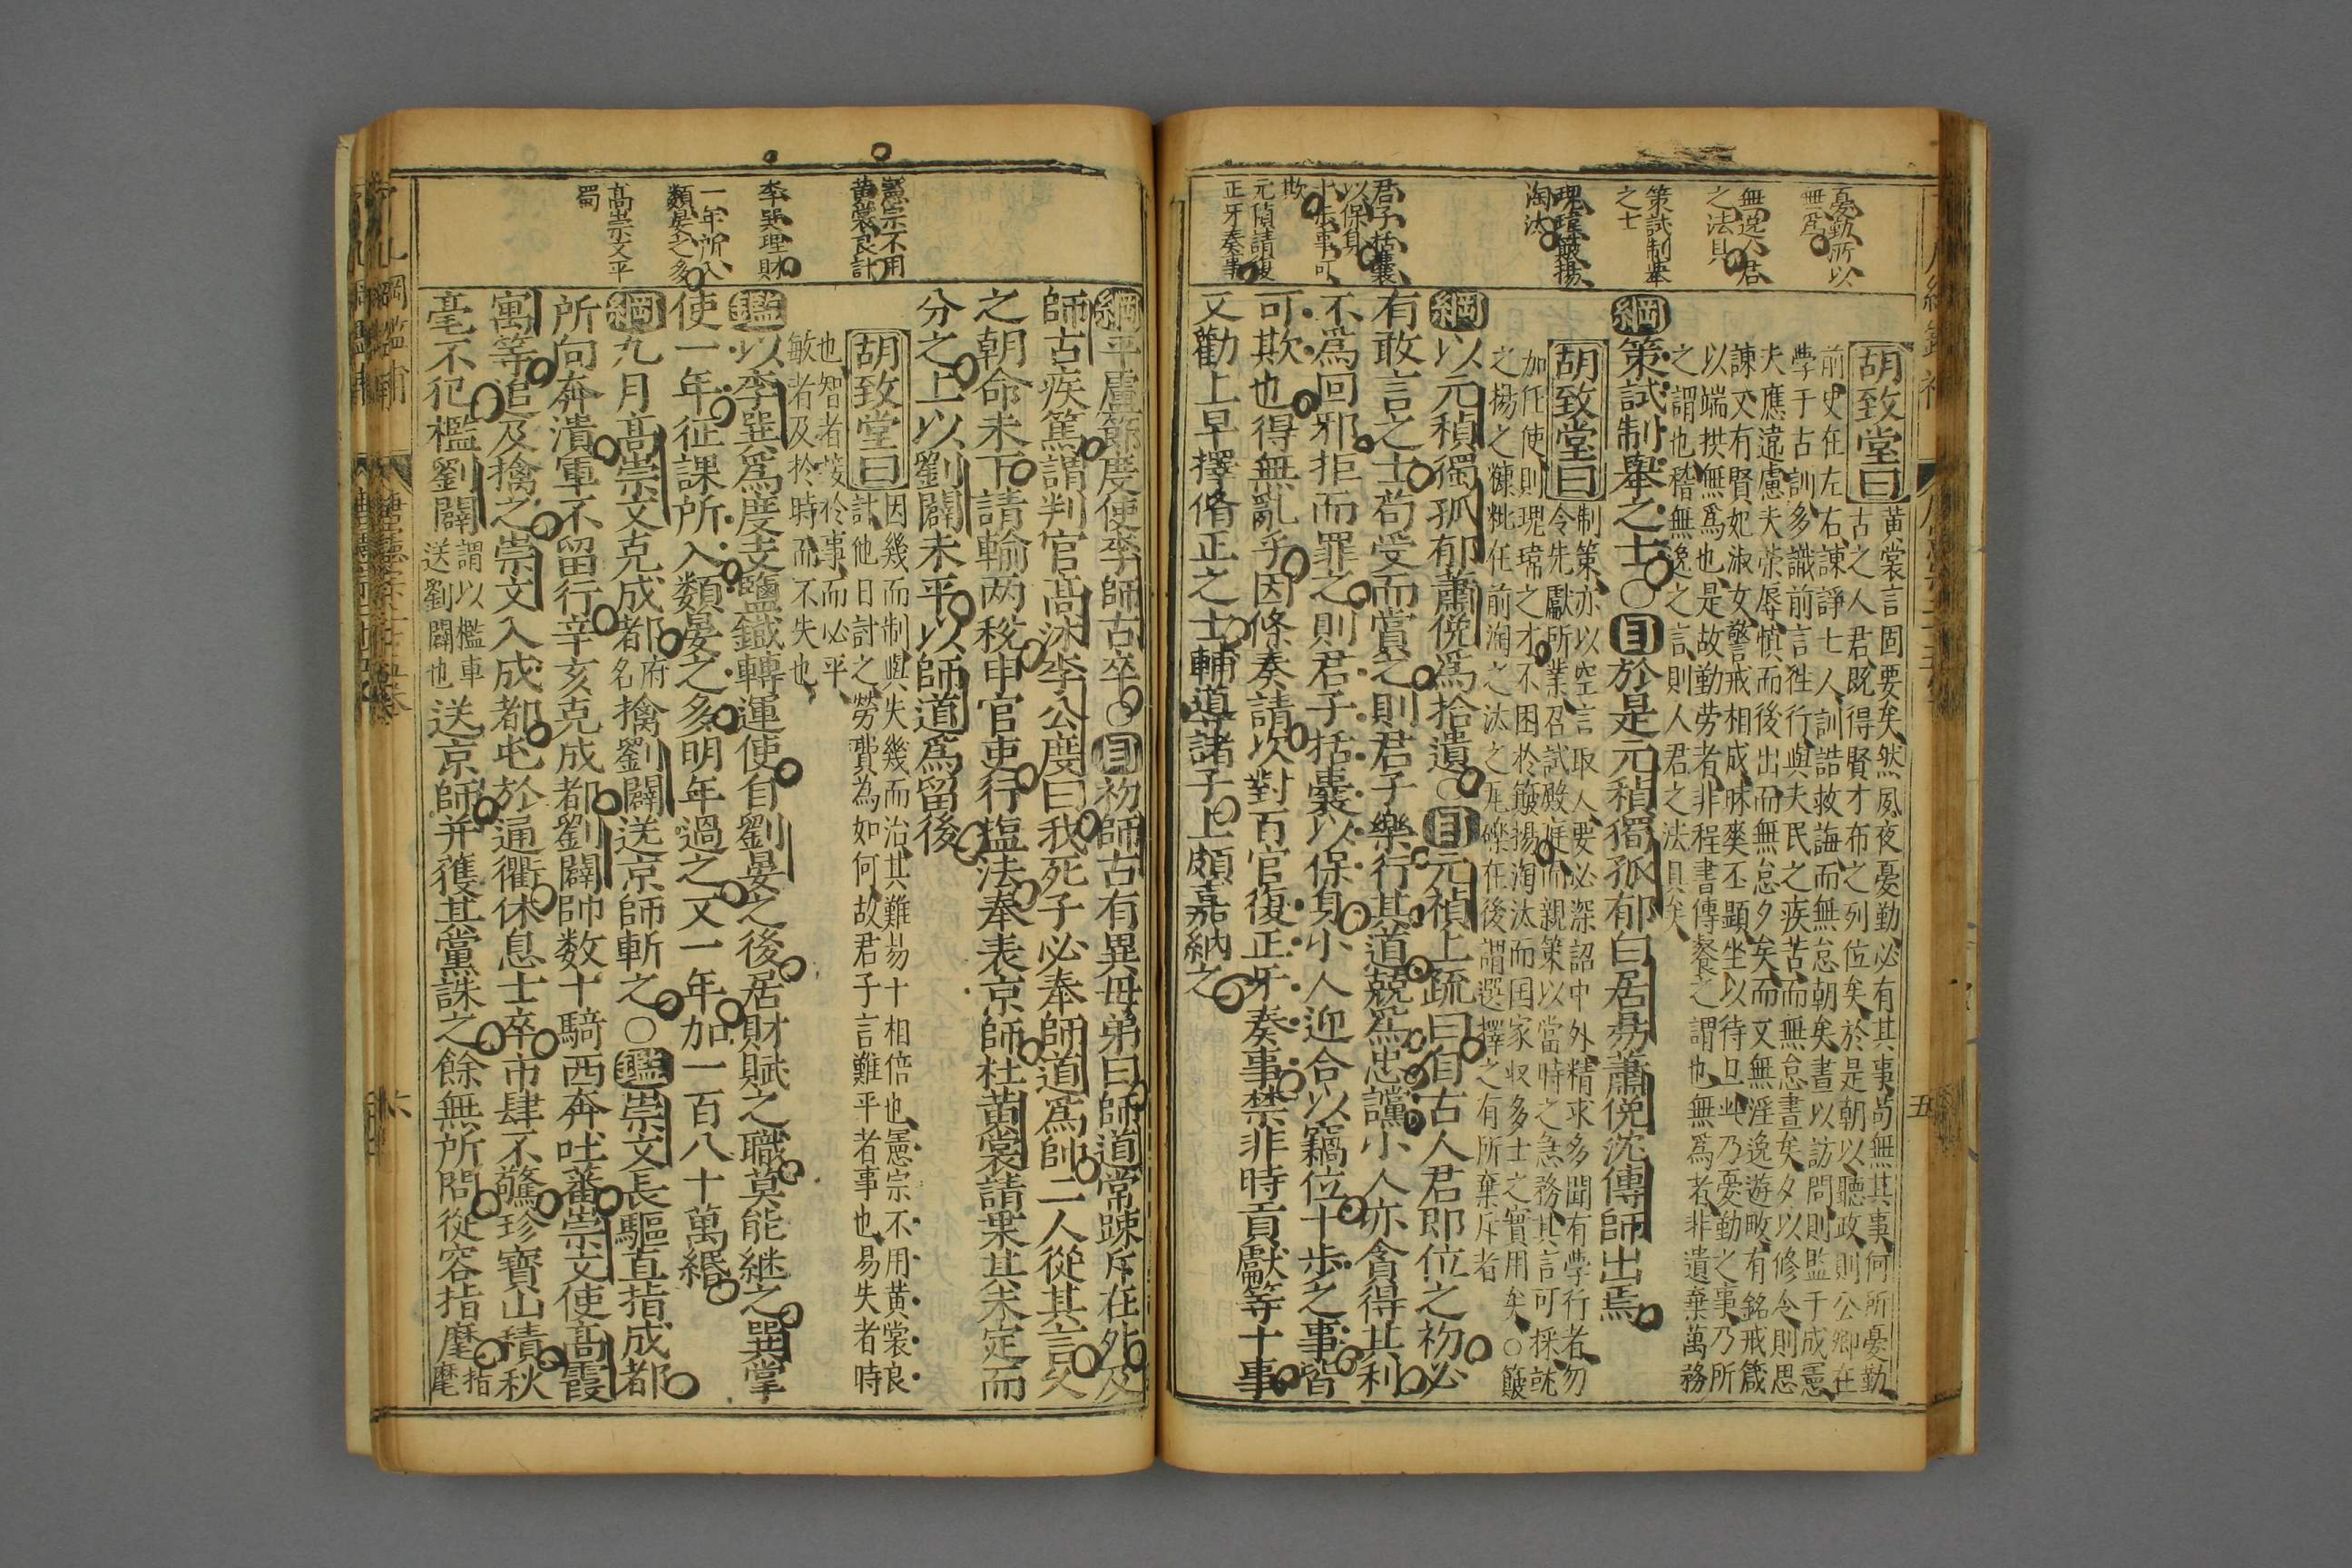 憂勤所以
無爲
無逸人君
之法具
策試制舉
之士
瑰瑋簸揚
淘汰
君子括囊
以保身
十步事可
欺
元稹請復
正牙奏事
胡致堂曰
黄裳言固要矣然夙夜憂勤必有其事苟無其事何所憂勤
古之人君既得賢才布之列位矣於是朝以聽政則公卿在
前史在左右諫諍七人訓誥救誨而無怠朝矣晝以訪問則監于成憲
學于古訓多識前言徃行與夫民之疾苦而無怠晝矣夕以修令則思
夫應違慮夫榮辱慎而後出而無怠夕矣而又無淫逸遊畋有銘戒箴
諫又有賢妃淑女警戒相成昧爽丕顯坐以待旦此乃憂勤之事乃所
以端拱無爲也是故勤劳者非程書傳餐之謂也無爲者非遺棄萬務
之謂也稽無逸之言則人君之法具矣
綱策試制舉之士○目於是元稹獨孤郁白居易蕭俛沈傳師出焉
胡致堂曰
制策亦以空言取人要必深詔中外精求多聞有學行者勿
令先獻所業召試殿庭而親策以當時之急務其言可採就
加任使則瑰瑋之才不困於簸揚淘汰而囯家収多士之實用矣○簸
之揚之糠粃任前淘之汰之尾礫在後謂選擇之有所棄斥者
綱以元稹獨孤郁蕭俛爲拾遺○目元稹上疏曰自古人君即位之初必
有敢言之士苟受而賞之則君子樂行其道競爲忠讜小人亦貪得其利
不爲回邪拒而罪之則君子括囊以保身小人迎合以竊位十步之事皆
可欺也得無亂乎因條奏請次對百官復正牙奏事禁非時貢獻等十事
又勸上早擇脩正之士輔導諸子上頗嘉納之
五
憲宗不用
黄裳良計
李巽理財
一年所入
類晏之多
髙崇文平
蜀
綱平盧節度使李師古卒○目初師古有異母弟曰師道常踈斥在外及
師古疾篤謂判官髙沐李公度曰我死子必奉師道爲帥二人從其言久
之朝命未下請輸两稅申官吏行塩法奉表京師杜黄裳請乗其未定而
分之上以劉闢未平以師道爲留後
胡致堂曰
因幾而制與失幾而治其難易十相倍也憲宗不用黄裳良
計他日討之劳費為如何故君子言難平者事也易失者時
也智者笅於事而必平
敏者及於時而不失也
鑑以李巽爲度支鹽鐵轉運使自劉晏之後居財賦之職莫能継之巽掌
使一年征課所入類晏之多明年過之又一年加一百八十萬緡
綱九月髙崇文克成都府名擒劉闢送京師斬之○鑑崇文長驅直指成都
所向奔潰軍不留行辛亥克成都劉闢帥数十騎西奔吐蕃崇文使髙霞
寓等追及擒之崇文入成都屯於通衢休息士卒市肆不驚珍寶山積秋
毫不犯檻劉闢謂以檻車送劉闢也送京師并獲其黨誅之餘無所問從容指麾指麾
六